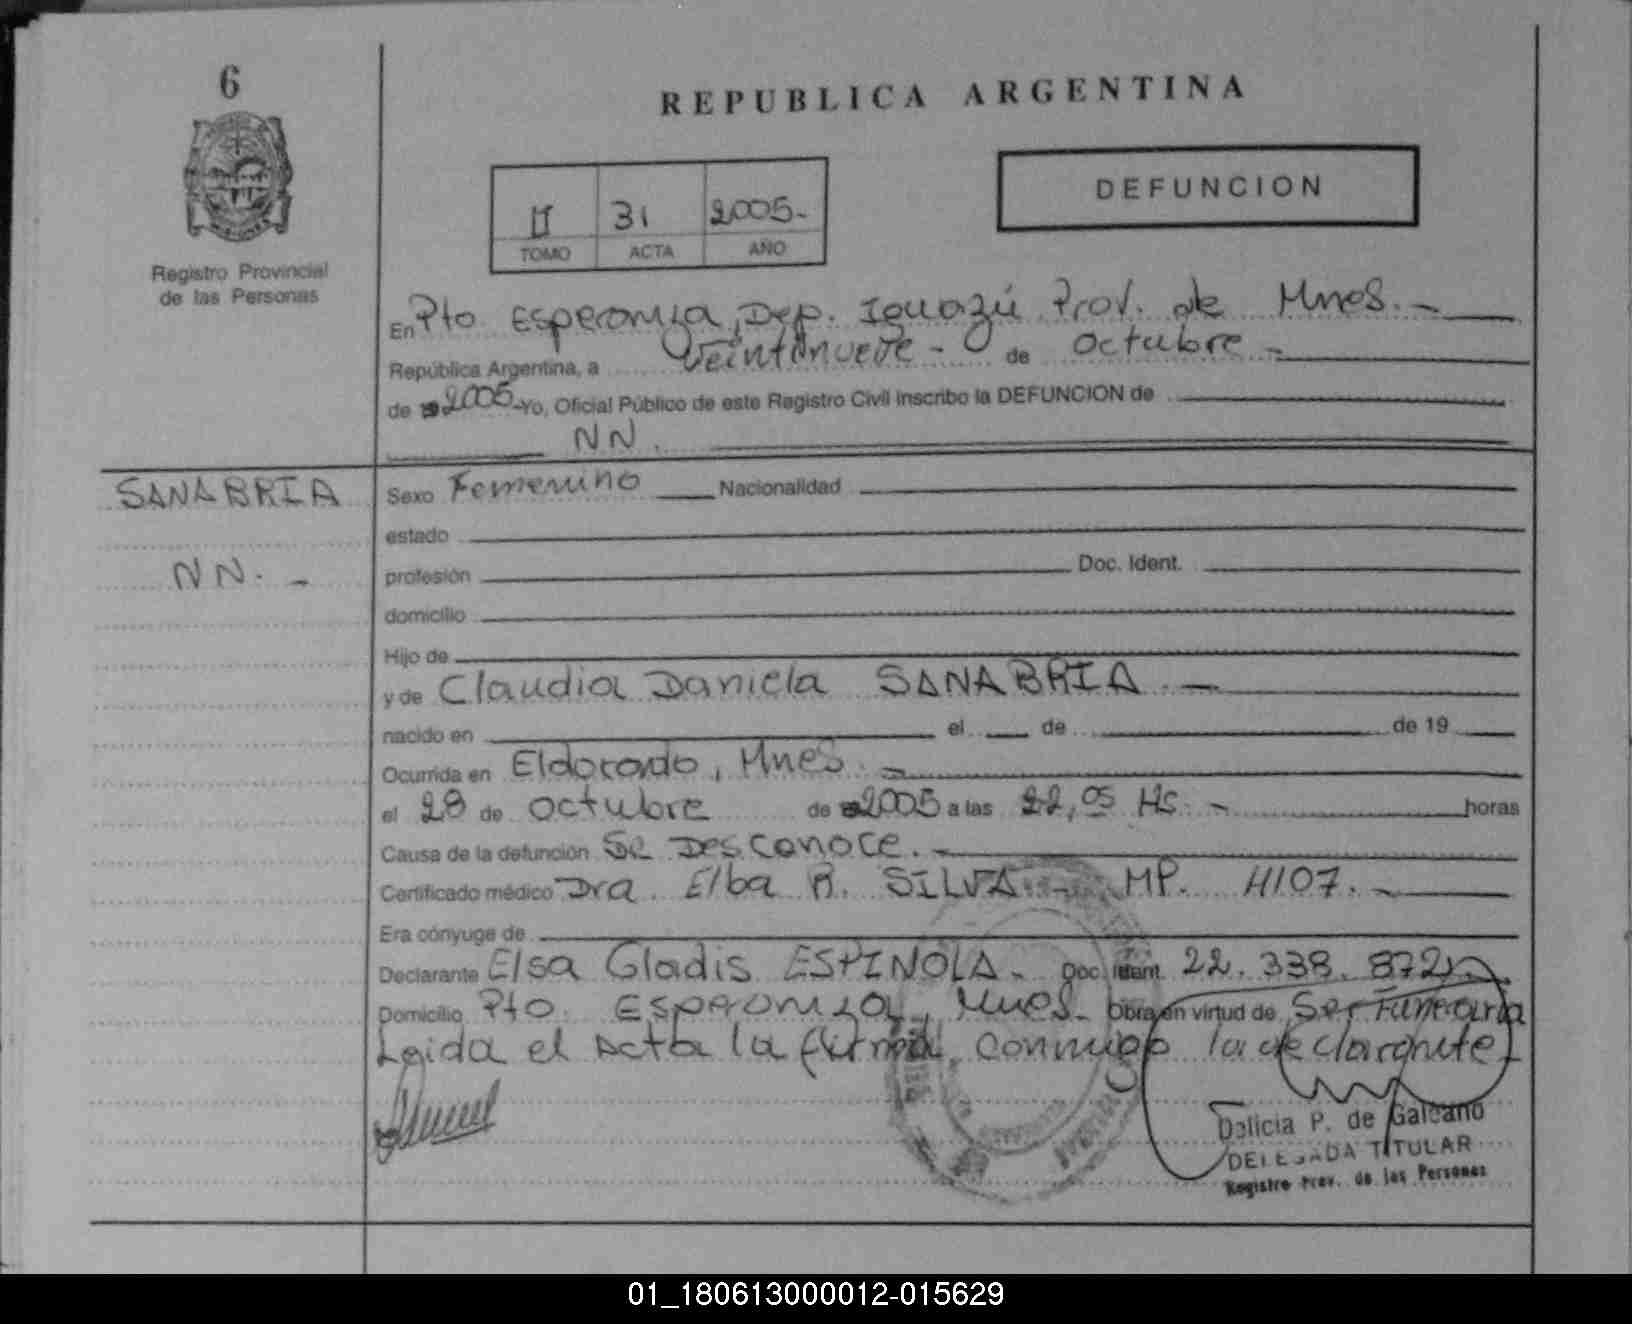 6
REPUBLICA ARGENTINA
DEFUNCION
II 31 2005.-
TOMO ACTA AÑO
Registro Provincial
de las Personas
En Pto Esperanza, Dep. Iguazú Prov. de Mnes. -
República Argentina, a veintinueve - de Octubre -
de 2005 - Yo, Oficial Público de este Registro Civil inscribo la DEFUNCION de
NN.
SANABRIA
NN. -
Sexo Femenino Nacionalidad
estado
profesión Doc. Ident.
domicilio
Hijo de
y de Claudia Daniela SANABRIA. -
nacido en el de de 19
Ocurrida en Eldorado, Mnes. -
el 28 de Octubre de 2005 a las 22,05 Hs. - horas
Causa de la defunción Se Desconoce. -
Certificado médico Dra. Elba R. SILVA - MP. 4107. -
Era cónyuge de
Declarante Elsa Gladis ESPINOLA. Doc. Ident. 22.338.872
Domicilio Pto. Esperanza, Mnes. Obra en virtud de Ser Funeraria
Leida el Acta la firma conmigo la declarante
Delicia P. de Galeano
DELEGADA TITULAR
Registro Prov. de las Personas
01_180613000012-015629